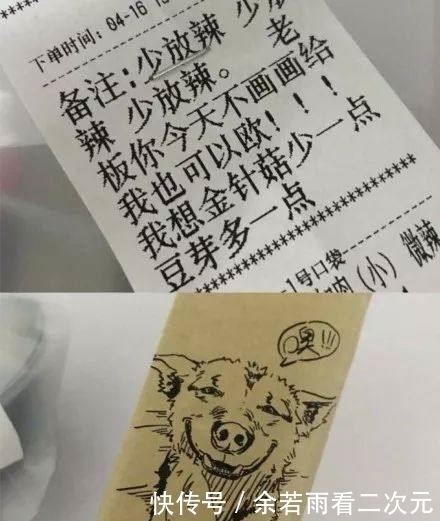 下单时间：04-16 1
备注：少放辣 少放
辣 少放辣。 老
板你今天不画画给
我也可以欧！！！
我想金针菇少一点
豆芽多一点
****************************
1号口袋
肉（小） 微辣
噢!!!
快传号 / 余若雨看二次元